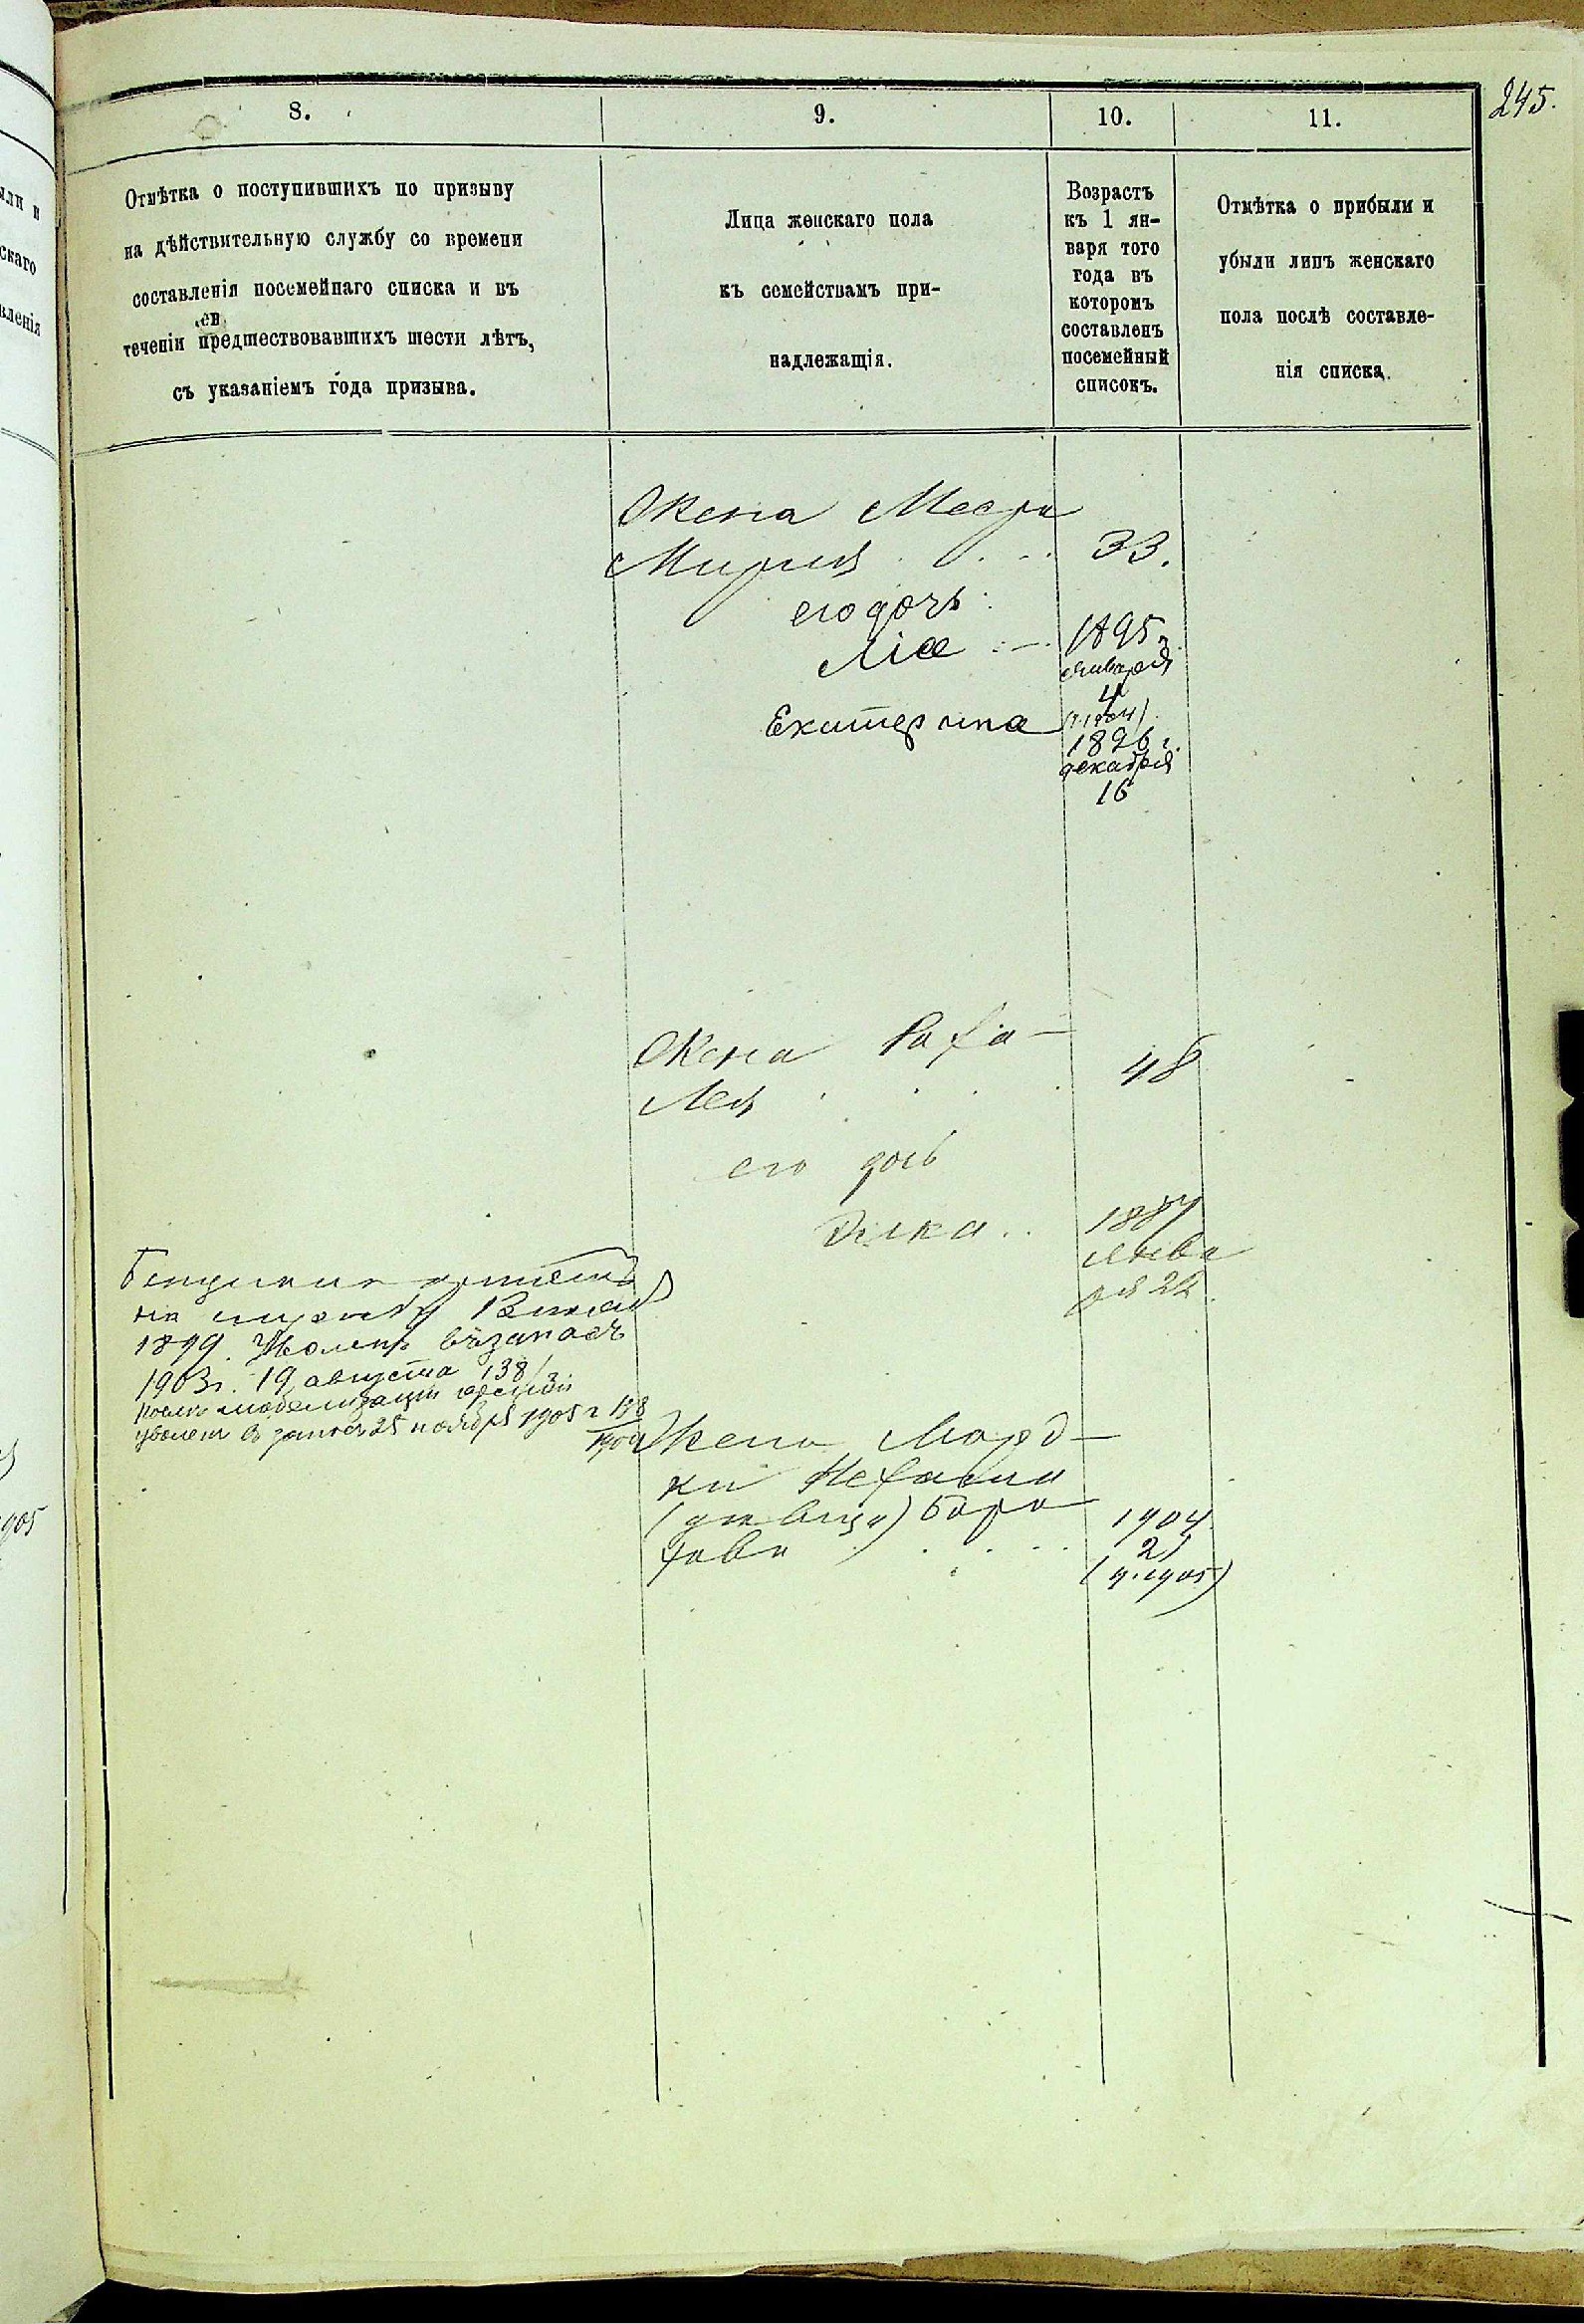 245.
8.
9.
10.
11.
Отмѣтка о поступившихъ по призыву
на дѣйствительную службу со времени
составленія посемейнаго списка и въ
теченіи предшествовавшихъ шести лѣтъ,
съ указаніемъ года призыва.
Лица женскаго пола
къ семействамъ при-
надлежащія.
Возрастъ
къ 1 ян-
варя того
года въ
которомъ
составленъ
посемейный
списокъ.
Отмѣтка о прибыли и
убыли лицъ женскаго
пола послѣ составле-
нія списка.
Жена Меера
Мирия 33.
его дочь
Лія 1895 г.
января
4
Екатерина
1896 г.
декабря
16
Жена
Лея 48
его дочь
1887
Янва
ря 22.
на службу
1899. Уволенъ въ запасъ
1903 г. 19 августа 138
уволенъ въ запасъ 25 ноября 1905 г 138
Жена Морд-
ки Нехама
(девица) Боро
хова 1904
21
(п. 1905)
905